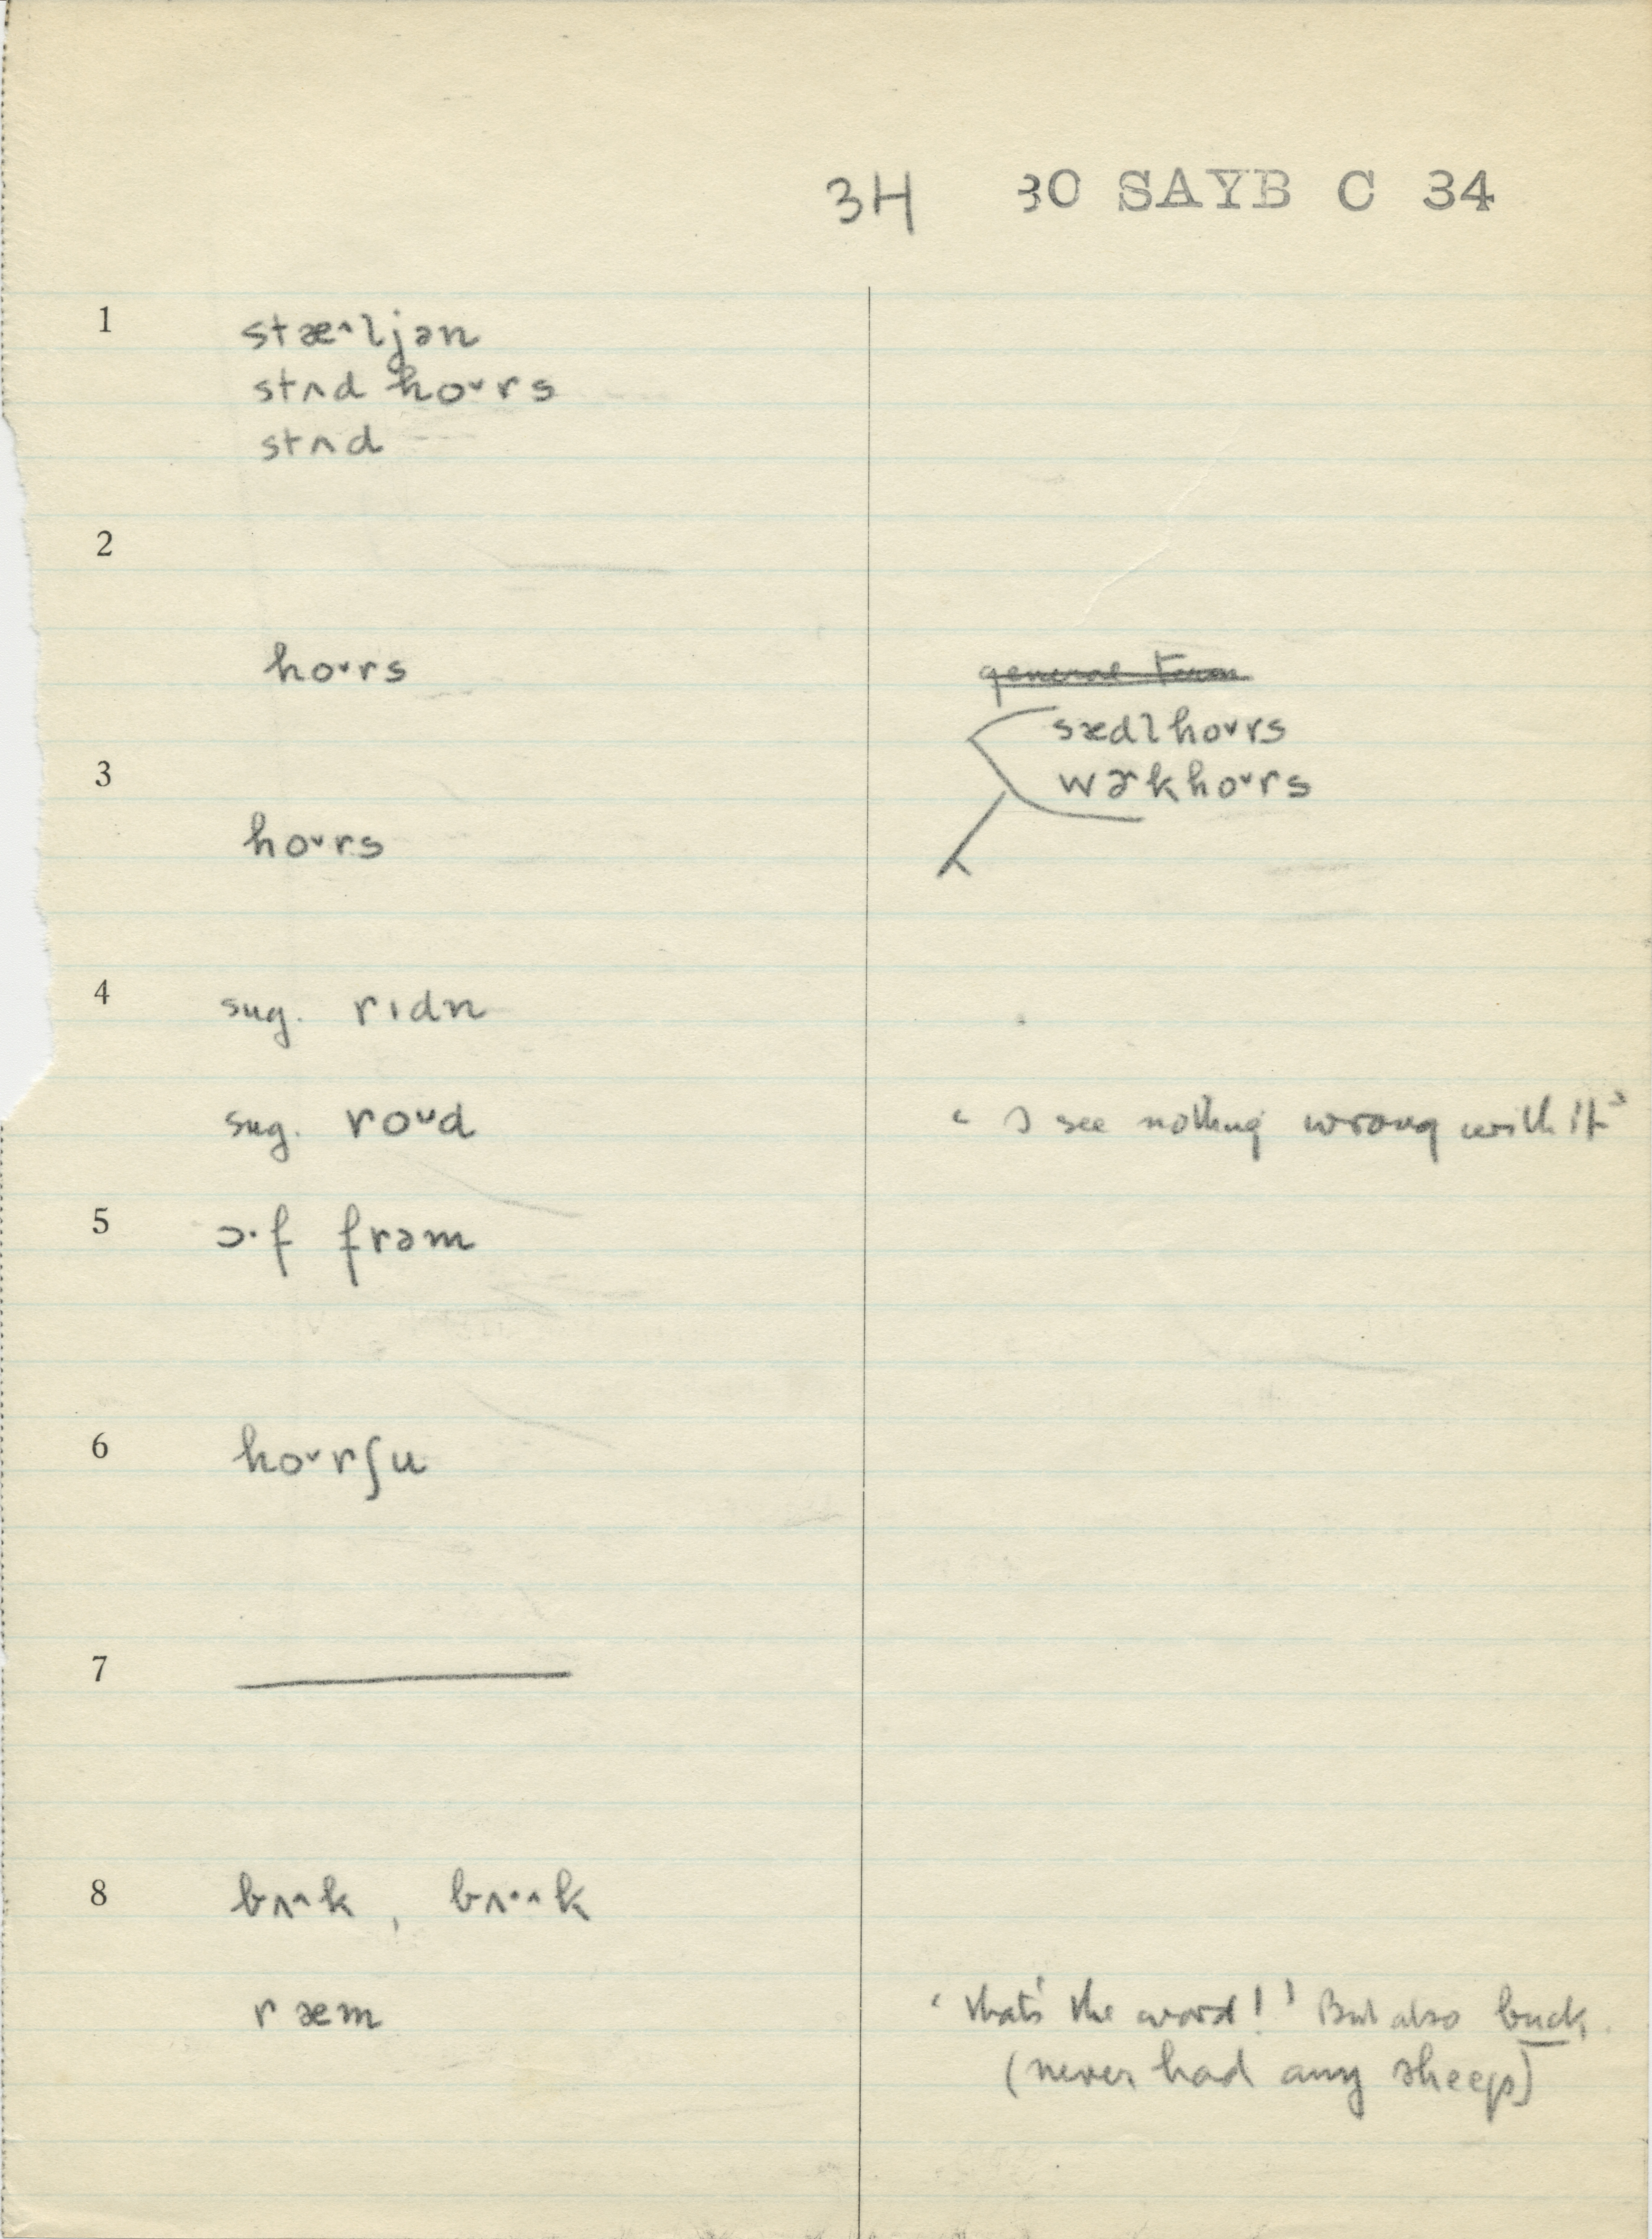 34 30 SAYB C 34
1 stæ^ljən
stʌd ho˅rs
stʌd
2
ho˅rs general term
sædl ho˅rs
3 wɚk ho˅rs
ho˅rs
4 sug. rɪdn
sug. roᵘd ‘I see nothing wrong with it’
5 ɔ·f frəm
6 ho˅rʃu
7
8 bʌ^k, bʌ·^k
ræm ‘that's the word!’ But also buck.
(never had any sheep)